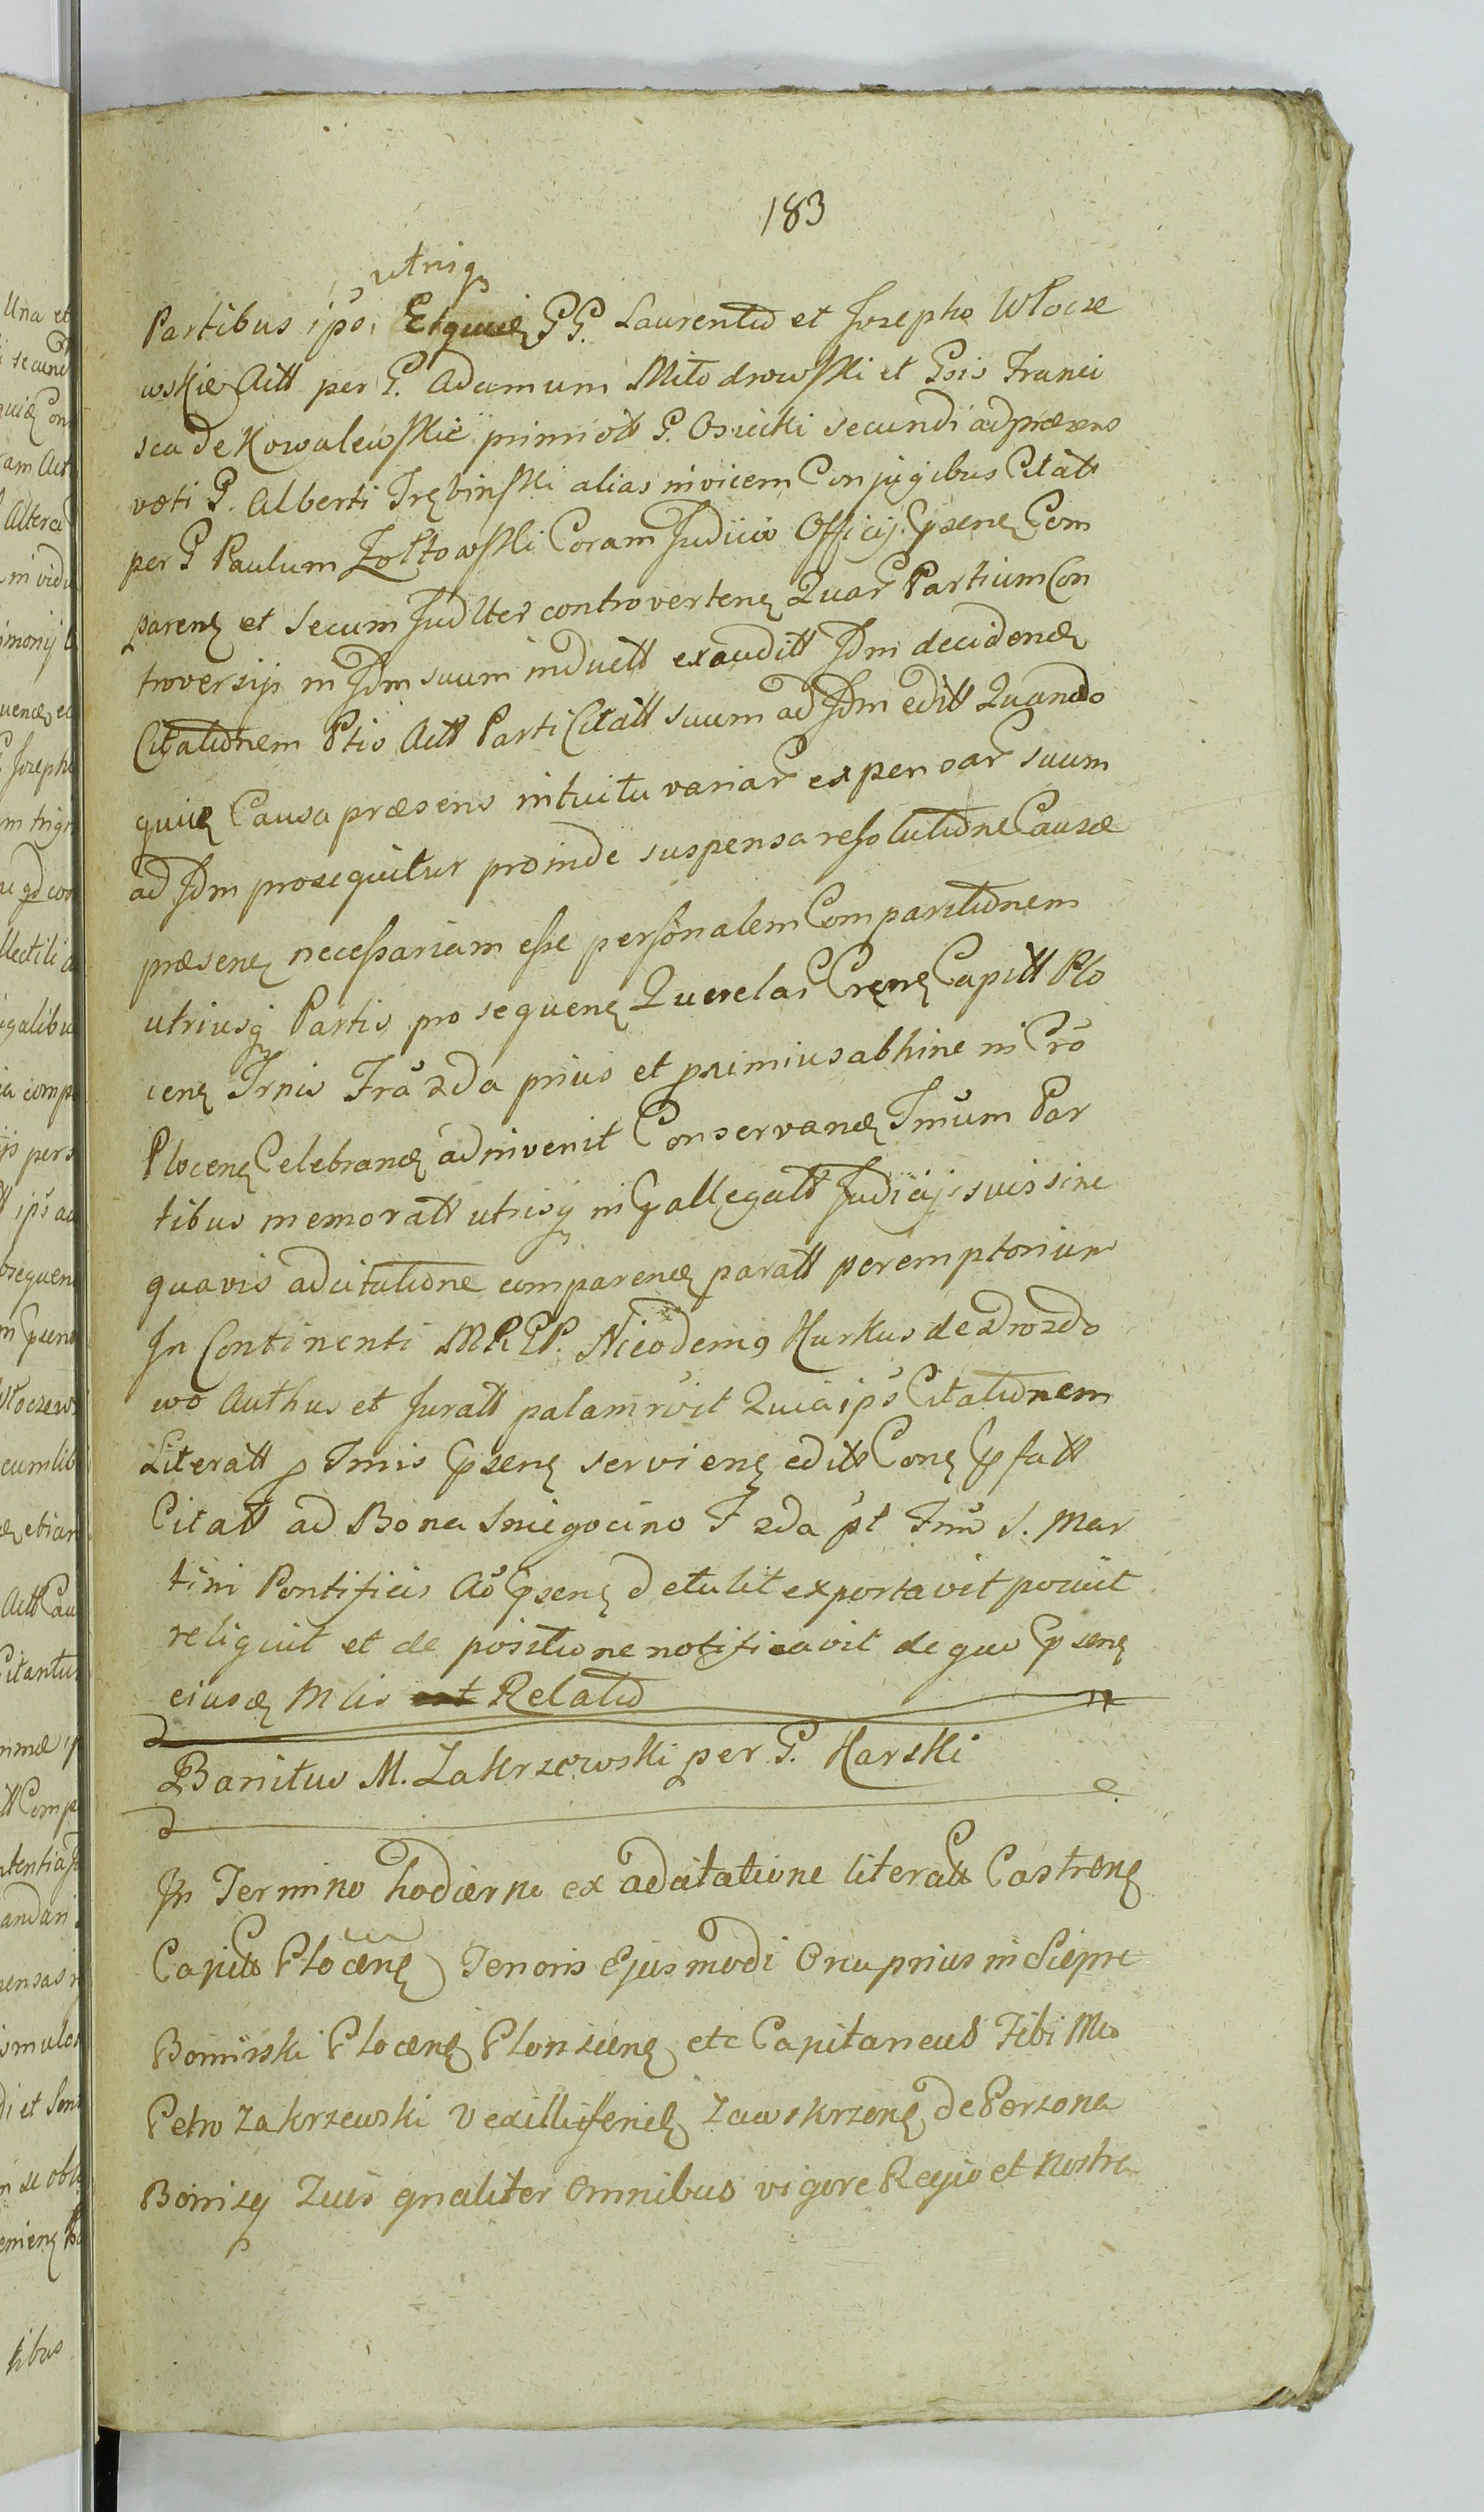 183
utriq
Partibus ipo, Etquidē GG. Laurentio et Josepho Włocze
wskie Actt per G. Adamum Młodrowski et Gois Franci
sca de Kowalewskie primi ott G. Osiecki secundi ad præsens
voti G. Alberti Trębinski alias invicem Conjugibus Citatt
per G Paulum Zołtowski Coram Judicio Officij. Gpsenę Com
parenę et secum Judlter controvertenę Quar Partium Con
troversijs in Jdm suum inductt exauditt Jdm decidendę
Citationem Ptis Actt Parti Citatt suum ad Jdm editt Quando
quidę Causa præsens intuitu variar expensar suum
ad Jdm prosequitur proinde suspensa resolutione Causæ
præsenę necessariam esse personalem Comparitionem
utriusq Partis pro sequenę Querelas Crenę Capitt Plo
cenę Trnis Fra 2da prius et proximius abhinc in Cro
Plocenę Celebrandę adinvenit Conservandę Tmum Par
tibus memoratt utrisq in Gallegatt Judicijs suis sine
quavis adcitatione comparendę paratt peremptorium
In Continenti MREP. Nicodemg Kurkus de Drozdo
wo Authus et Juratt palam rvit Quia ips Citationem
Literatt p Tmis Gpsenę servienę editt Conę Gpfatt
Citatt ad Bona Sniegocino F 2da pt Fnu S. Mar
tini Pontificis Ao Gpsenę detulit exportavit posuit
reliquit et de positione notificavit de quo Gpsenę
eiusdę Mlis est Relatio
Banitus M. Zakrzewski per G. Karski
In Termino hodierno ex adcitatione literatt Castrenę
Capitt Plocenę Tenoris Ejusmodi Onuphrius in Siepre
Bomirski Plocenę Plonscenę etc Capitaneus Tibi Mco
Petro Zakrzewski Vexilliferidę Zawskrzenę de Persona
Bonisq Tuis gnaliter Omnibus vigore Regio et Nostro